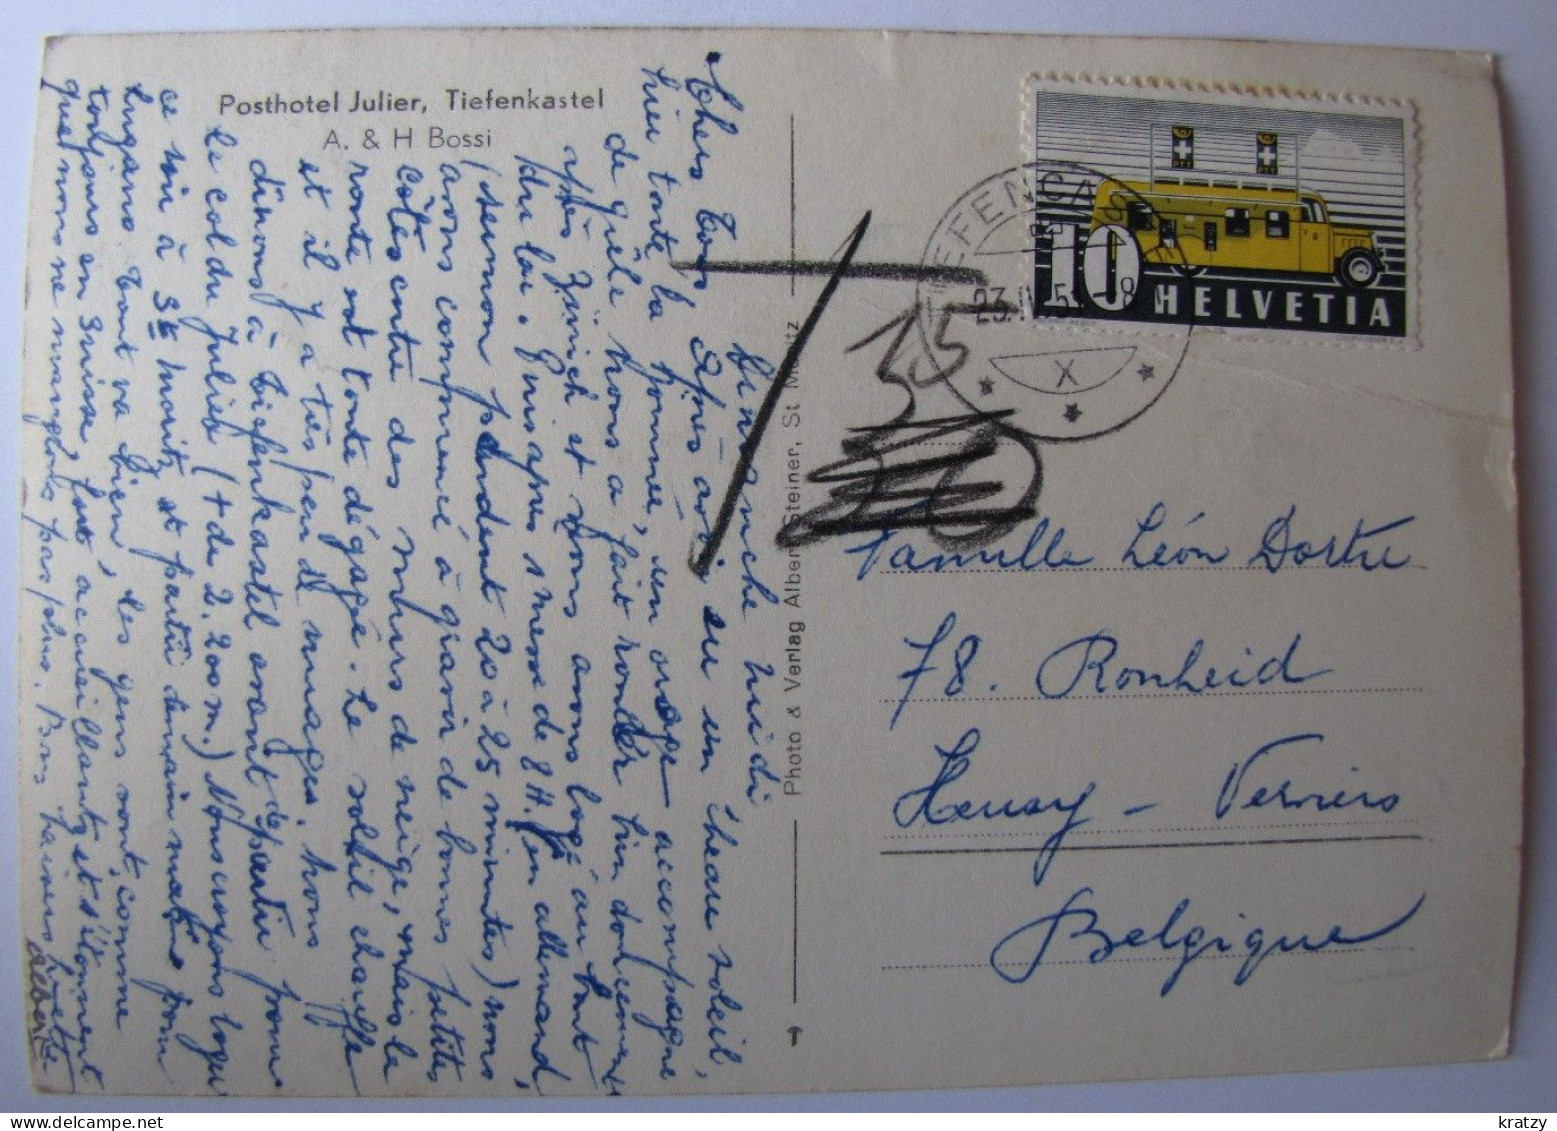 Posthotel Julier, Tiefenkastel
A. & H Bossi
Dimanche midi
Chers Tous Après avoir eu un beau soleil,
hier toute la journée, un orage accompagné
de grêle nous a fait rouler bien doucement
après Zürich et nous avons logé au bout
du lac. Puis après 1 messe de 8 H. (en allemand,
(sermon pendant 20 à 25 minutes) nous
avons commencé à gravir de bonnes petites
côtes entre des murs de neige, mais la
route est toute dégagée. Le soleil chauffe
et il y a très peu de nuages. Nous
dinons à Tiefenkastel avant de partir pour
le col du Julier (+ de 2.200 m.) Nous croyons loger
ce soir à St Moritz et partir demain matin pour
Lugano. Tout va bien, les gens sont, comme
toujours en Suisse, fort accueillants et s'étonnent
que nous ne manglons pas plus. Bons baisers
Albert
Photo & Verlag Albert Steiner, St. Moritz
10 HELVETIA
PTT
PTT
TIEFENCASTEL
23. 5
X
35
Famille Léon Dortu
78. Ronheid
Heusy - Verviers
Belgique
kratzy